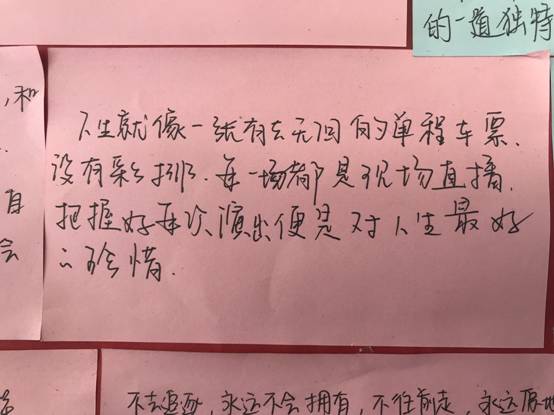 的一道独特
,和
人生就像一张有去无回的单程车票.
没有彩排.每一场都是现场直播.
把握好每次演出便是对人生最好
的珍惜.
自
会
不去追逐,永远不会拥有,不往前走,永远原地